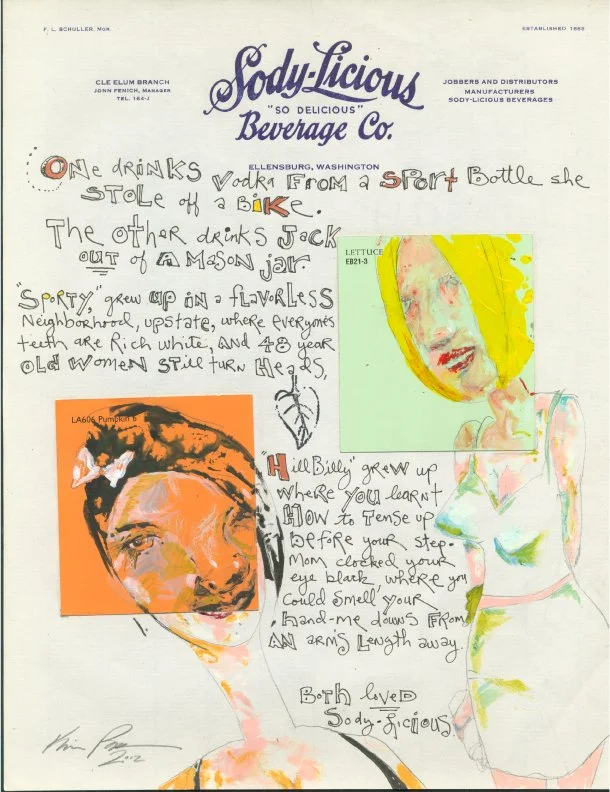 F. L. SCHULLER, MGR.
ESTABLISHED 1883
Sody-Licious
"SO DELICIOUS"
Beverage Co.
CLE ELUM BRANCH
JOHN FENICH, MANAGER
TEL. 164-J
JOBBERS AND DISTRIBUTORS
MANUFACTURERS
SODY-LICIOUS BEVERAGES
ELLENSBURG, WASHINGTON
One drinks vodka from a sport Bottle she
stole off a bike.
The other drinks Jack
out of A mason jar.
"Sporty," grew up in a flavorless
Neighborhood, upstate, where everyones
teeth are Rich white, and 48 year
old women still turn Heads.
LETTUCE
EB21-3
LA606 Pumpkin 6
"HillBilly" grew up
where you learnt
How to Tense up
before your step-
Mom clocked your
eye black, where you
could smell your
hand-me downs From
AN arms Length away.
Both loved
Sody-Licious
2012